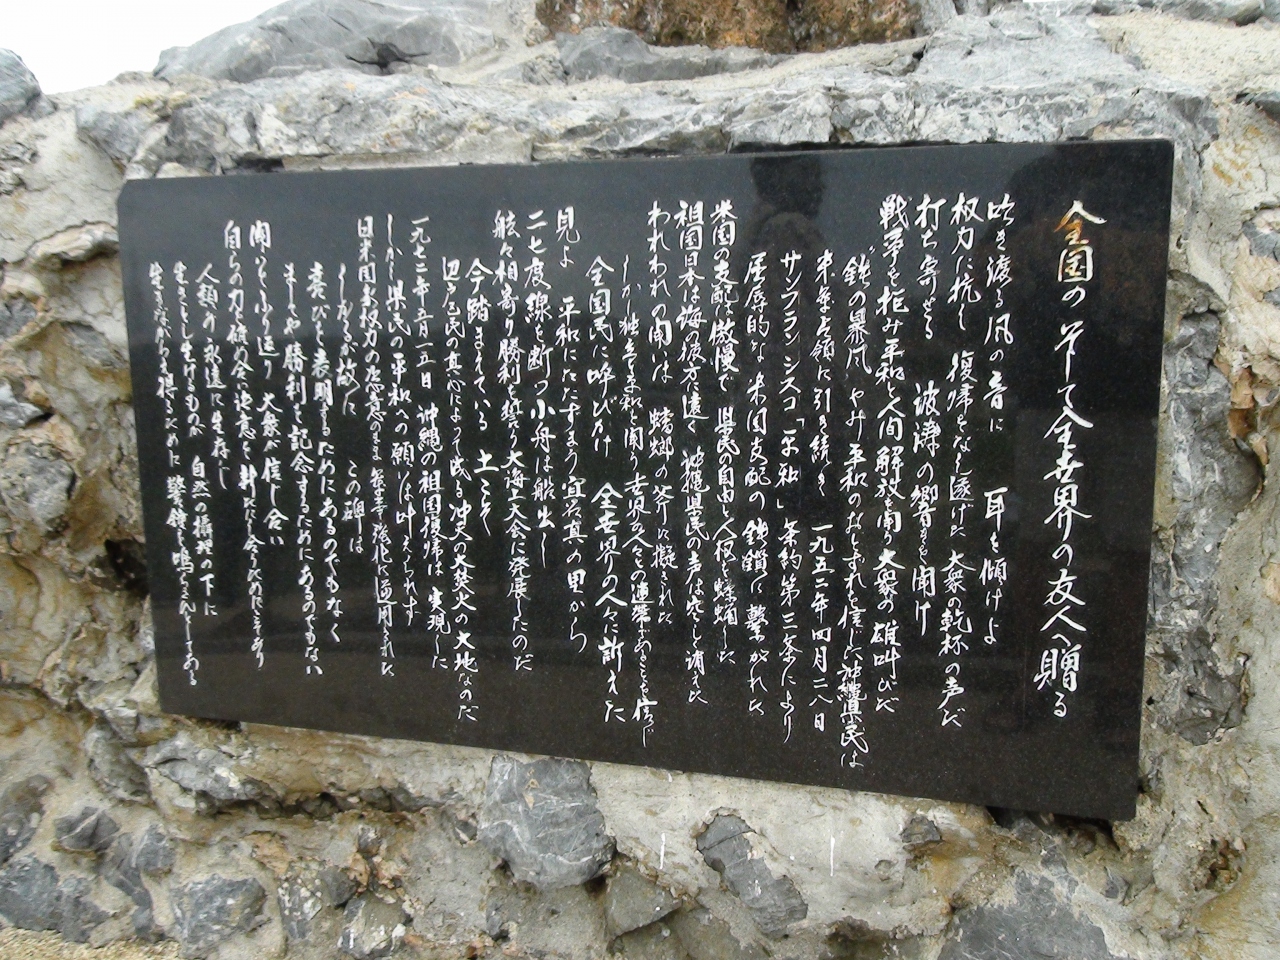 全国の そして全世界の友人へ贈る
吹き渡る風の音に 耳を傾けよ
权力に抗し 復帰をなし遂げた 大衆の乾杯の声だ
打ち寄せる 波濤の響きを聞け
戦争を拒み平和と人間解放を闘う大衆の雄叫びだ
“鉄の暴風”やみ 平和のおとずれを信じた沖縄県民は
米軍占領に引き続き 一九五二年四月二八日
サンフランシスコ「平和」条約第三条により
屈辱的な 米国支配の 鉄鎖に繋がれた
米国の支配は傲慢で 県民の自由と人权を蹂躙した
祖国日本は海の彼方に遠く 沖縄県民の声は空しく消えた
われわれの闘いは 蟷螂の斧に擬された
しかし独立と平和を闘う世界の人々との連帯あることを信じ
全国民に呼びかけ 全世界の人々に訴えた
見よ 平和にたたずまう宜名真の里から
二七度線を断つ小舟は船出し
舷々相寄り勝利を誓う大海上大会に発展したのだ
今踏まえている 土こそ
辺戸区民の真心によって成る沖天の大焚火の大地なのだ
一九七二年五月一五日 沖縄の祖国復帰は 実現した
しかし県民の平和への願いは叶えられず
日米国家权力の恣意のまま 軍事強化に逆用された
しかるが故に この碑は
喜びを表明するためにあるのでもなく
ましてや勝利を記念するためにあるのでもない
闘いをふり返り 大衆が信じ合い
自らの力を確め合い決意を新たにし合うためにこそあり
人類が 永遠に生存し
生きとし生けるものが 自然の摂理の下に
生きながらえ得るために 警鐘を鳴らさんとしてある